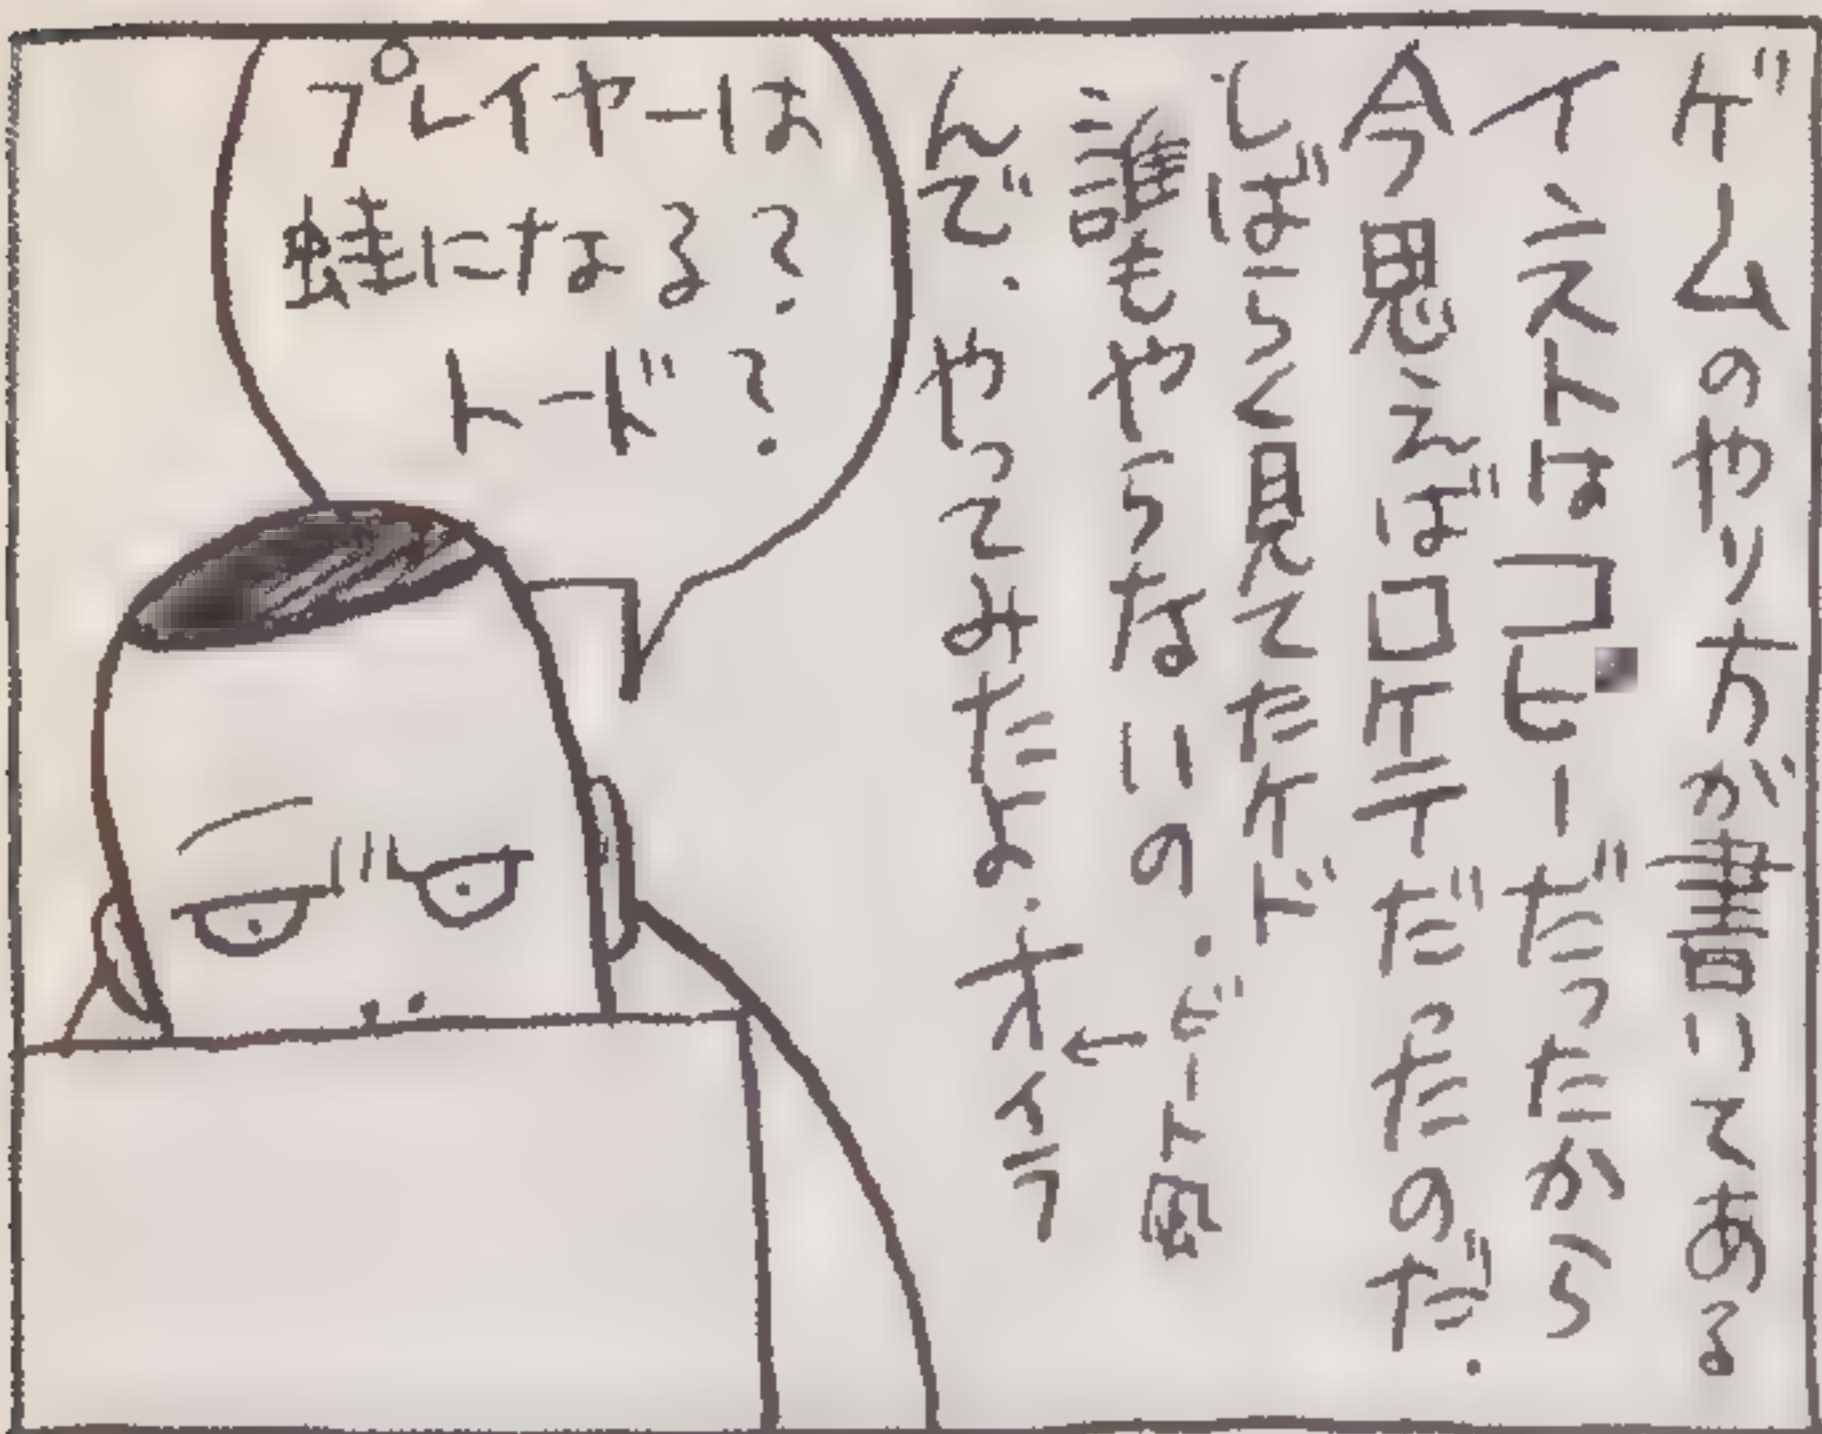 ゲームのやり方が書いてある
インストはコピーだったから
今思えばロケテだったのだ.
しばらく見てたケド
誰もやらないの.
んで.やってみたよ.オイラ
←ビート風
プレイヤーは
蛙になる?
トード?